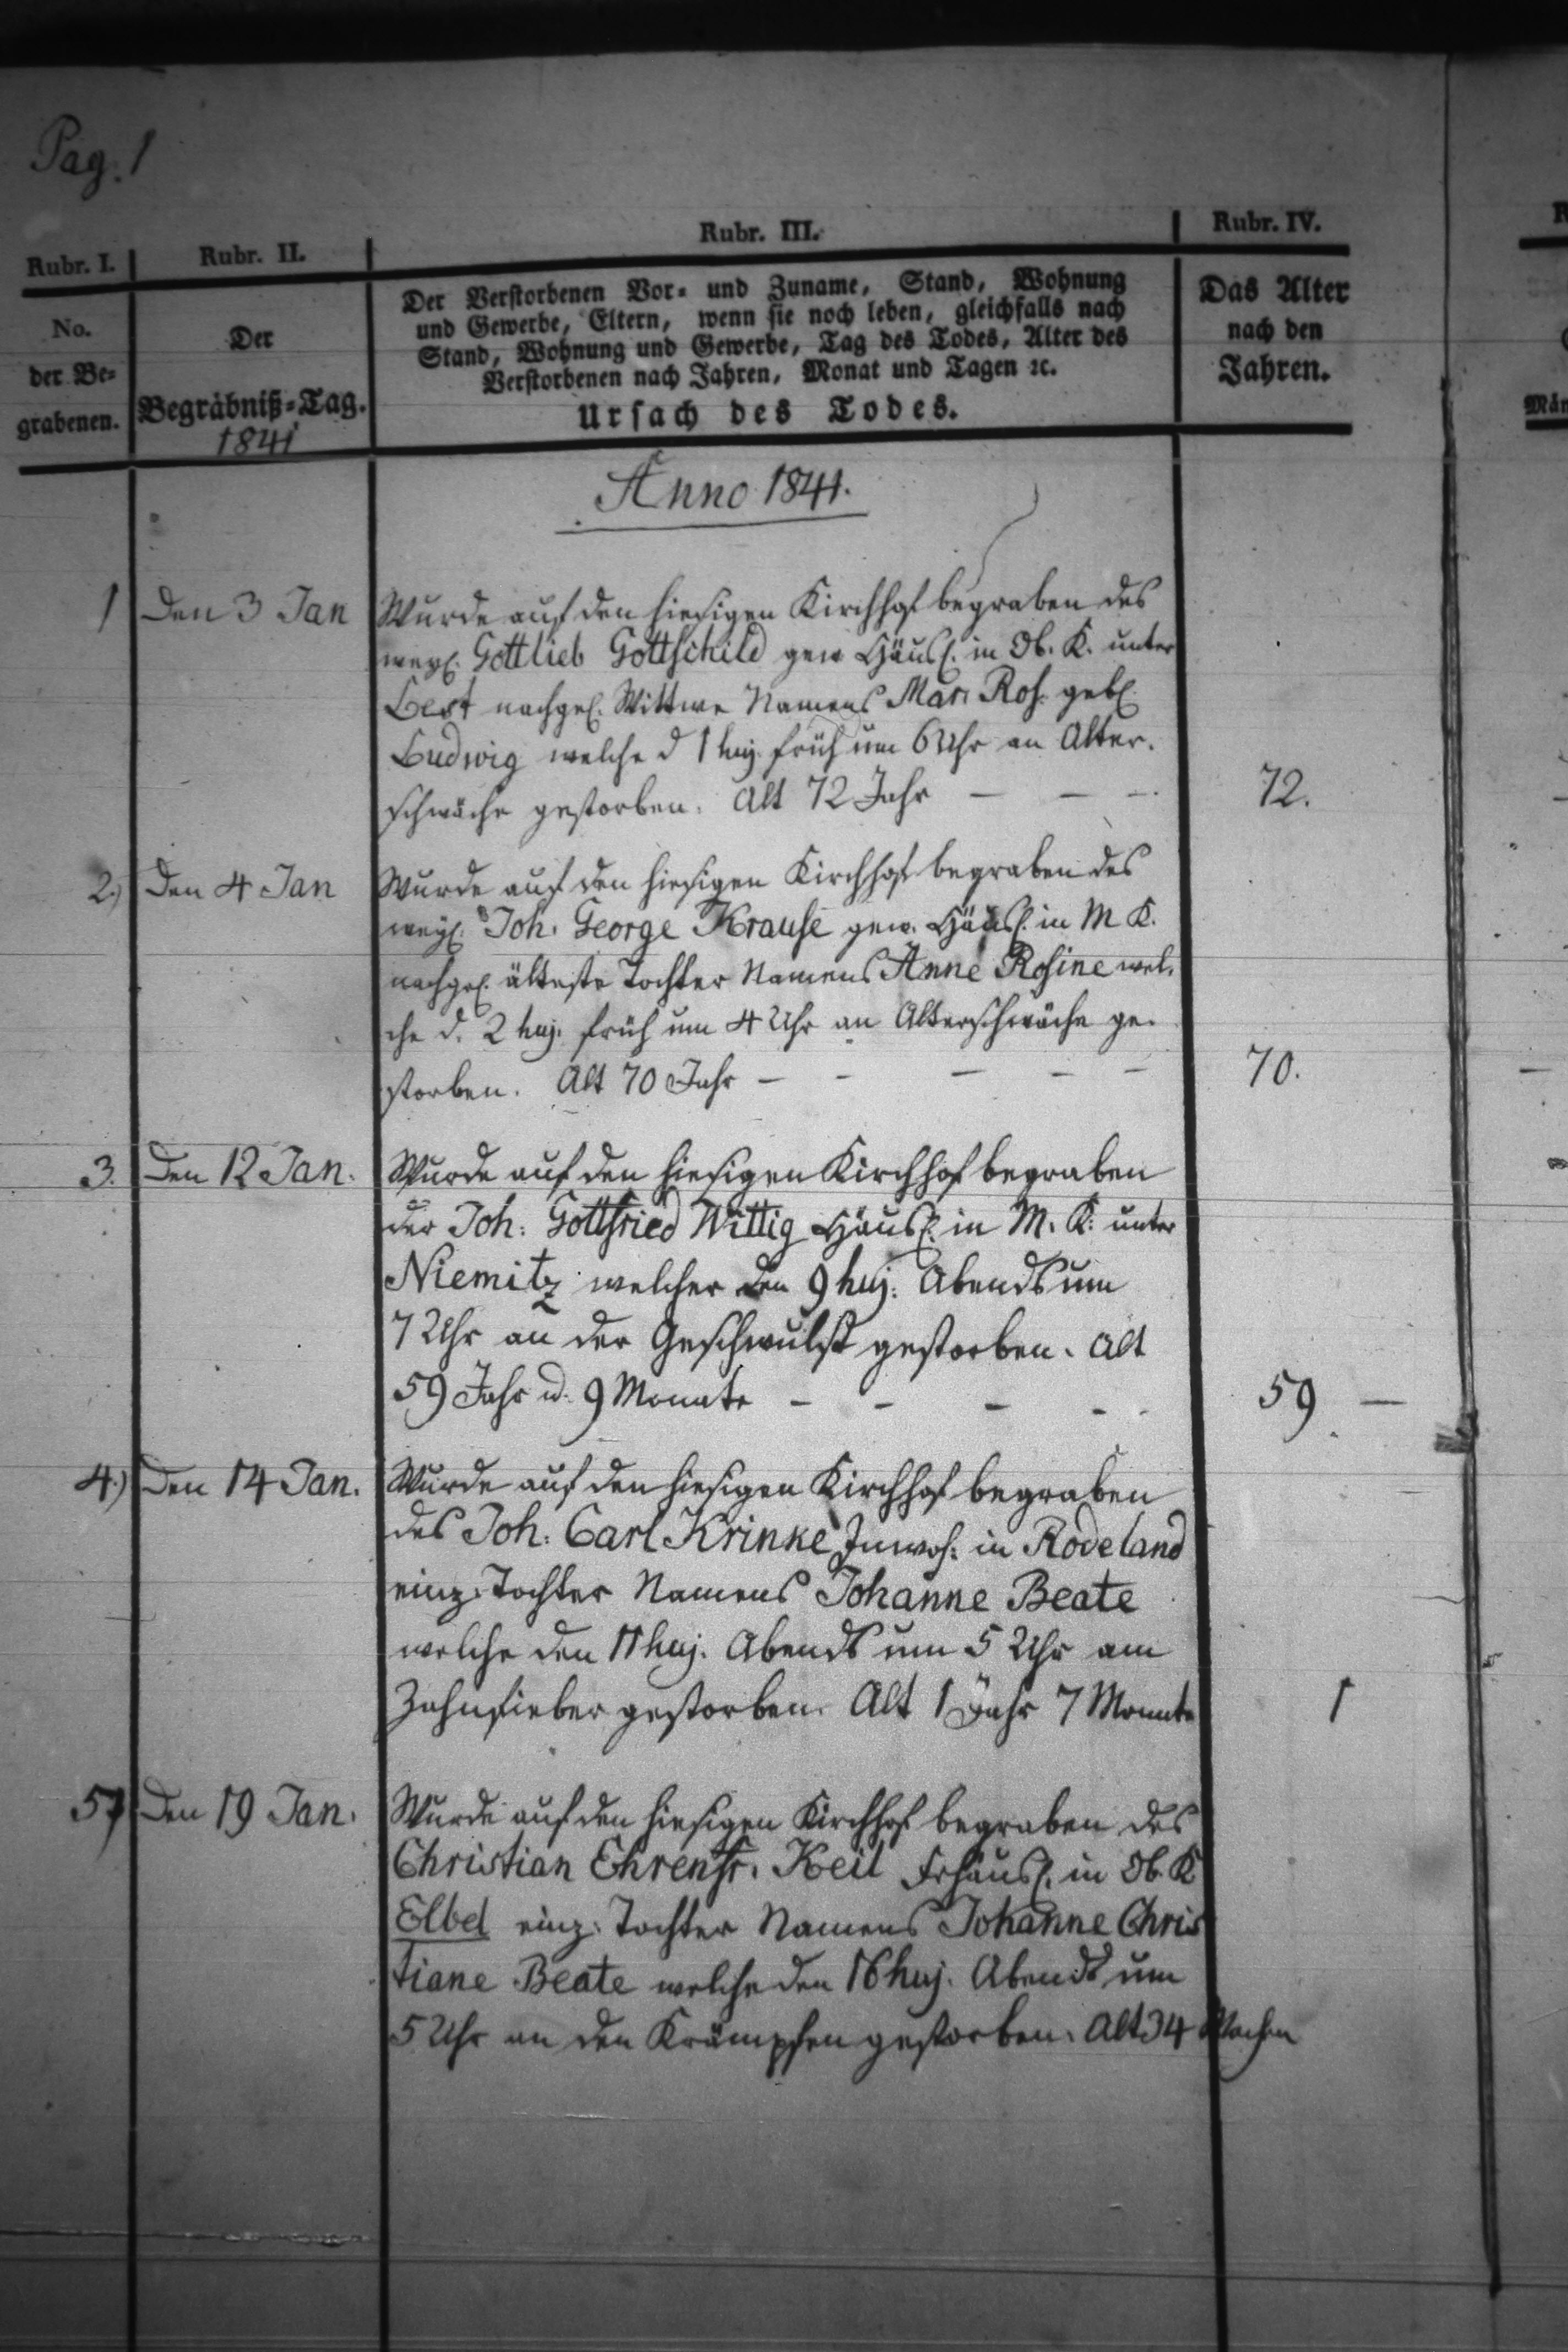 Pag. 1
Rubr. I. Rubr. II. Rubr. III. Rubr. IV.
No.
der Be-
grabenen.
Der
Begräbniß-Tag.
1841
Der Verstorbenen Vor- und Zuname, Stand, Wohnung
und Gewerbe, Eltern, wenn sie noch leben, gleichfalls nach
Stand, Wohnung und Gewerbe, Tag des Todes, Alter des
Verstorbenen nach Jahren, Monat und Tagen ꝛc.
Ursach des Todes.
Das Alter
nach den
Jahren.
Anno 1841.
1 Den 3 Jan Wurde auf den hiesigen Kirchhof begraben des
weyl. Gottlieb Gottschild gew Häusl. in Ob. K. unter
nachgel. Wittwe Namens Mar. Ros. gebl.
Ludwig welche d 1 huj. früh um 6 Uhr an Alter-
schwäche gestorben. Alt 72 Jahr — — — 72.
2.) Den 4 Jan Wurde auf den hiesigen Kirchhof begraben des
weyl. Joh. George Krause gew. Häusl. in M K.
nachgel. älteste Tochter Namens Anne Rosine wel-
che d. 2 huj. früh um 4 Uhr an Alterschwäche ge-
storben. Alt 70 Jahr — — — — — 70.
3. Den 12 Jan. Wurde auf den hiesigen Kirchhof begraben
der Joh. Gottfried Wittig Häusl. in M. K. unter
Niemitz welcher den 9 huj. Abends um
7 Uhr an der Geschwulst gestorben. Alt
59 Jahr u. 9 Monate — — — — 59 —
4.) Den 14 Jan. Wurde auf den hiesigen Kirchhof begraben
des Joh. Carl Krinke Inwoh: in Rodeland
einz. Tochter Namens Johanne Beate
welche den 11 huj. Abends um 5 Uhr am
Zahnfieber gestorben. Alt 1 Jahr 7 Monate 1
5) Den 19 Jan. Wurde auf den hiesigen Kirchhof begraben des
Christian Ehrenfr. Keil Frhäusl. in Ob. K
Elbel einz. Tochter Namens Johanne Chris
tiane Beate welche den 16 huj. Abends um
5 Uhr an den Krämpfen gestorben. Alt 34 Wochen